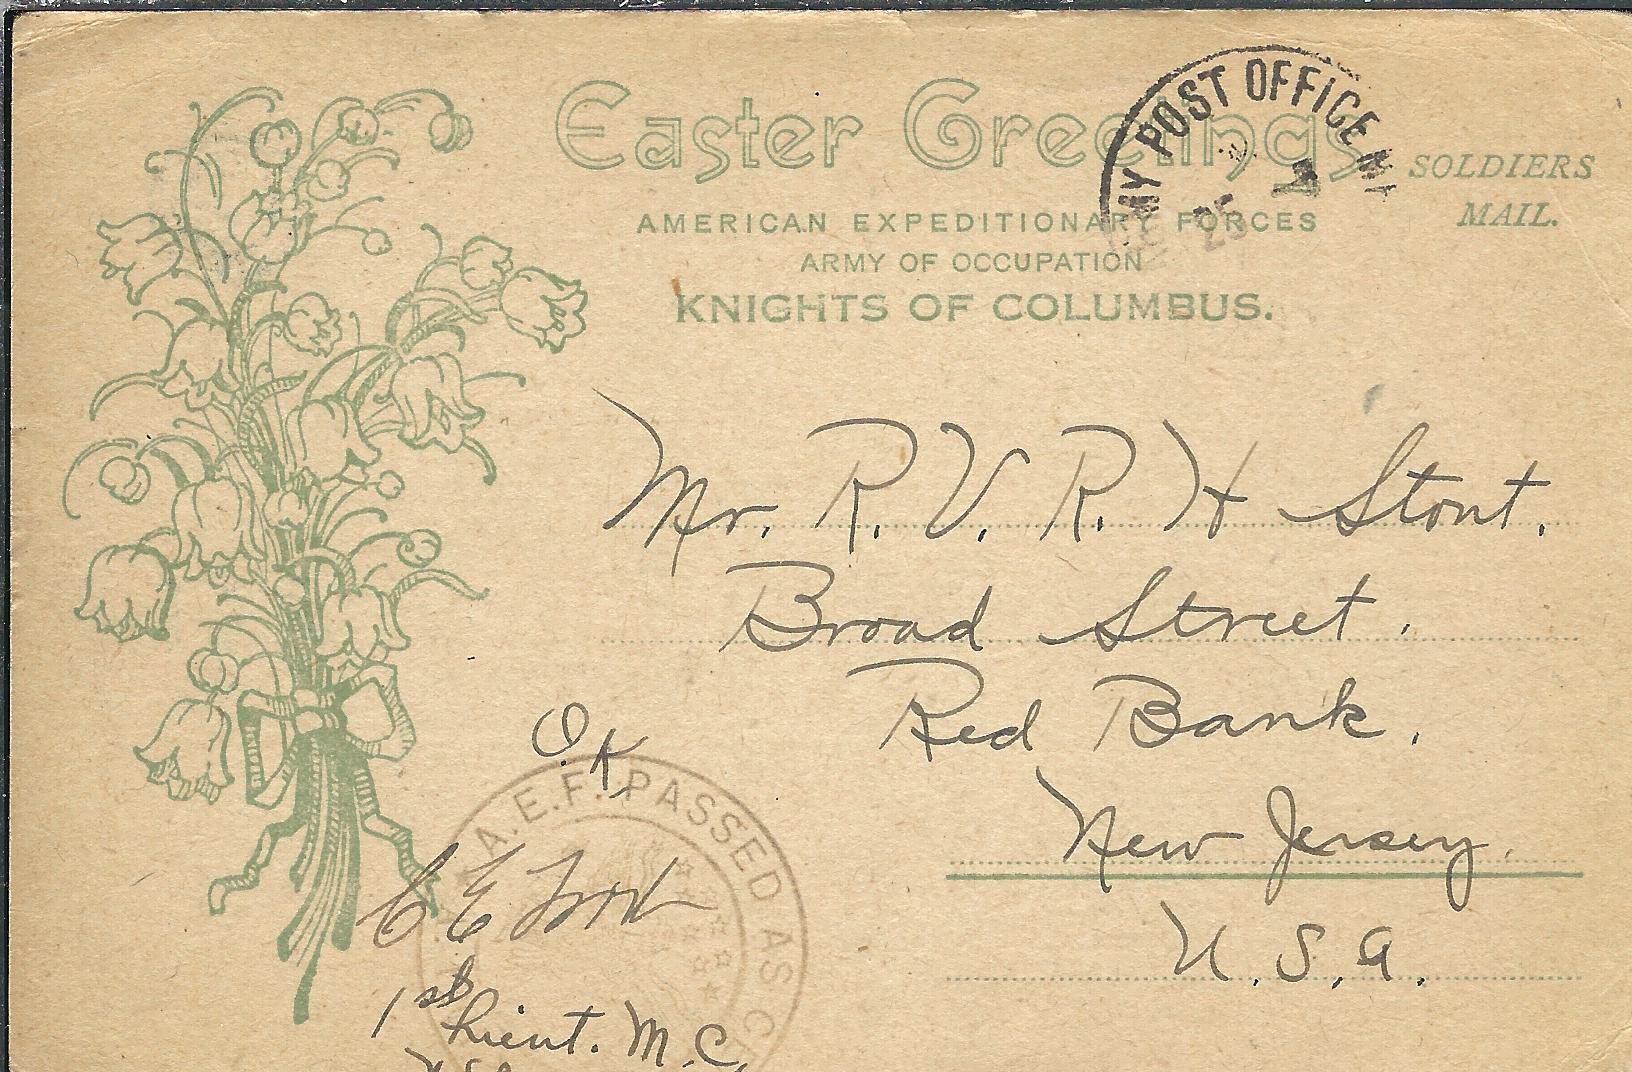 Easter Greetings
AMERICAN EXPEDITIONARY FORCES
ARMY OF OCCUPATION
KNIGHTS OF COLUMBUS.
SOLDIERS
MAIL.
MY POST OFFICE
25
Mr. R. V. R. H Stout.
Broad Street.
Red Bank.
New Jersey.
U. S. A.
O.K.
A.E.F. PASSED AS C
C E
1st Lieut. M.C.